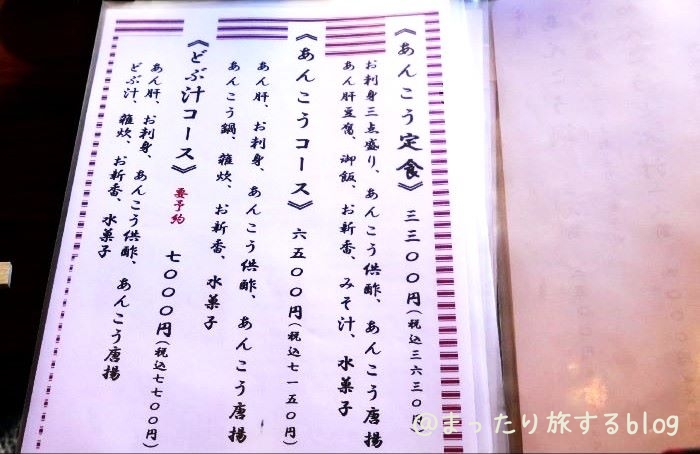 《あんこう定食》 三三〇〇円（税込三六三〇円
お刺身三点盛り、あんこう供酢、あんこう唐揚
あん肝豆腐、御飯、お新香、みそ汁、水菓子
《あんこうコース》 六五〇〇円（税込七一五〇円）
あん肝、お刺身、あんこう供酢、あんこう唐揚
あんこう鍋、雑炊、お新香、水菓子
《どぶ汁コース》 要予約 七〇〇〇円（税込七七〇〇円）
あん肝、お刺身、あんこう供酢、あんこう唐揚
どぶ汁、雑炊、お新香、水菓子
@まったり旅するblog